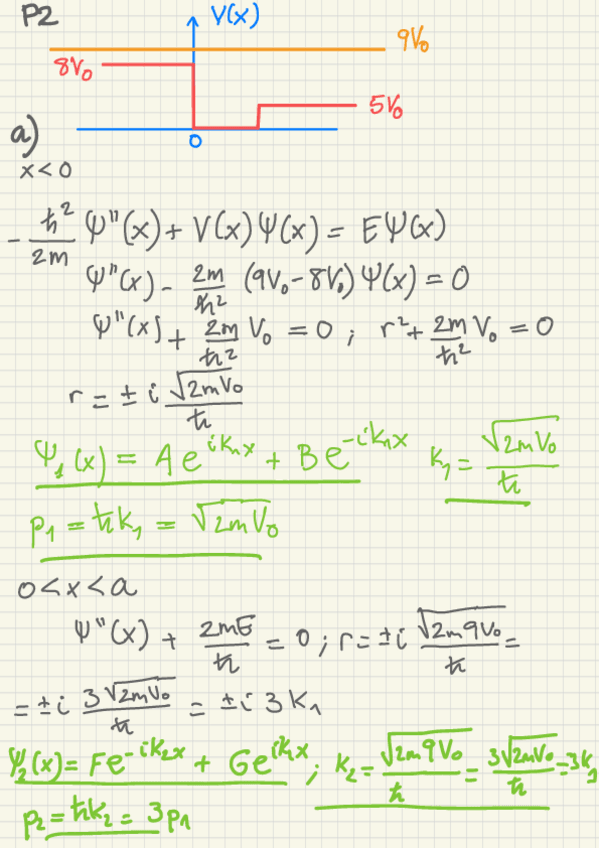 P2
V(x)
9V₀
8V₀
5V₀
a)
0
x < 0
- ℏ²/2m Ψ''(x) + V(x)Ψ(x) = EΨ(x)
Ψ''(x) - 2m/ℏ² (9V₀ - 8V₀)Ψ(x) = 0
Ψ''(x) + 2m/ℏ² V₀ = 0 ; r² + 2m/ℏ² V₀ = 0
r = ± i √(2mV₀)/ℏ
Ψ₁(x) = Ae^{ik₁x} + Be^{-ik₁x} k₁ = √(2mV₀)/ℏ
p₁ = ℏk₁ = √(2mV₀)
0 < x < a
Ψ''(x) + 2mE/ℏ = 0 ; r = ± i √(2m9V₀)/ℏ =
= ± i 3√(2mV₀)/ℏ = ± i 3K₁
Ψ₂(x) = Fe^{-ik₂x} + Ge^{ik₂x} ; k₂ = √(2m9V₀)/ℏ = 3√(2mV₀)/ℏ = 3k₁
p₂ = ℏk₂ = 3p₁